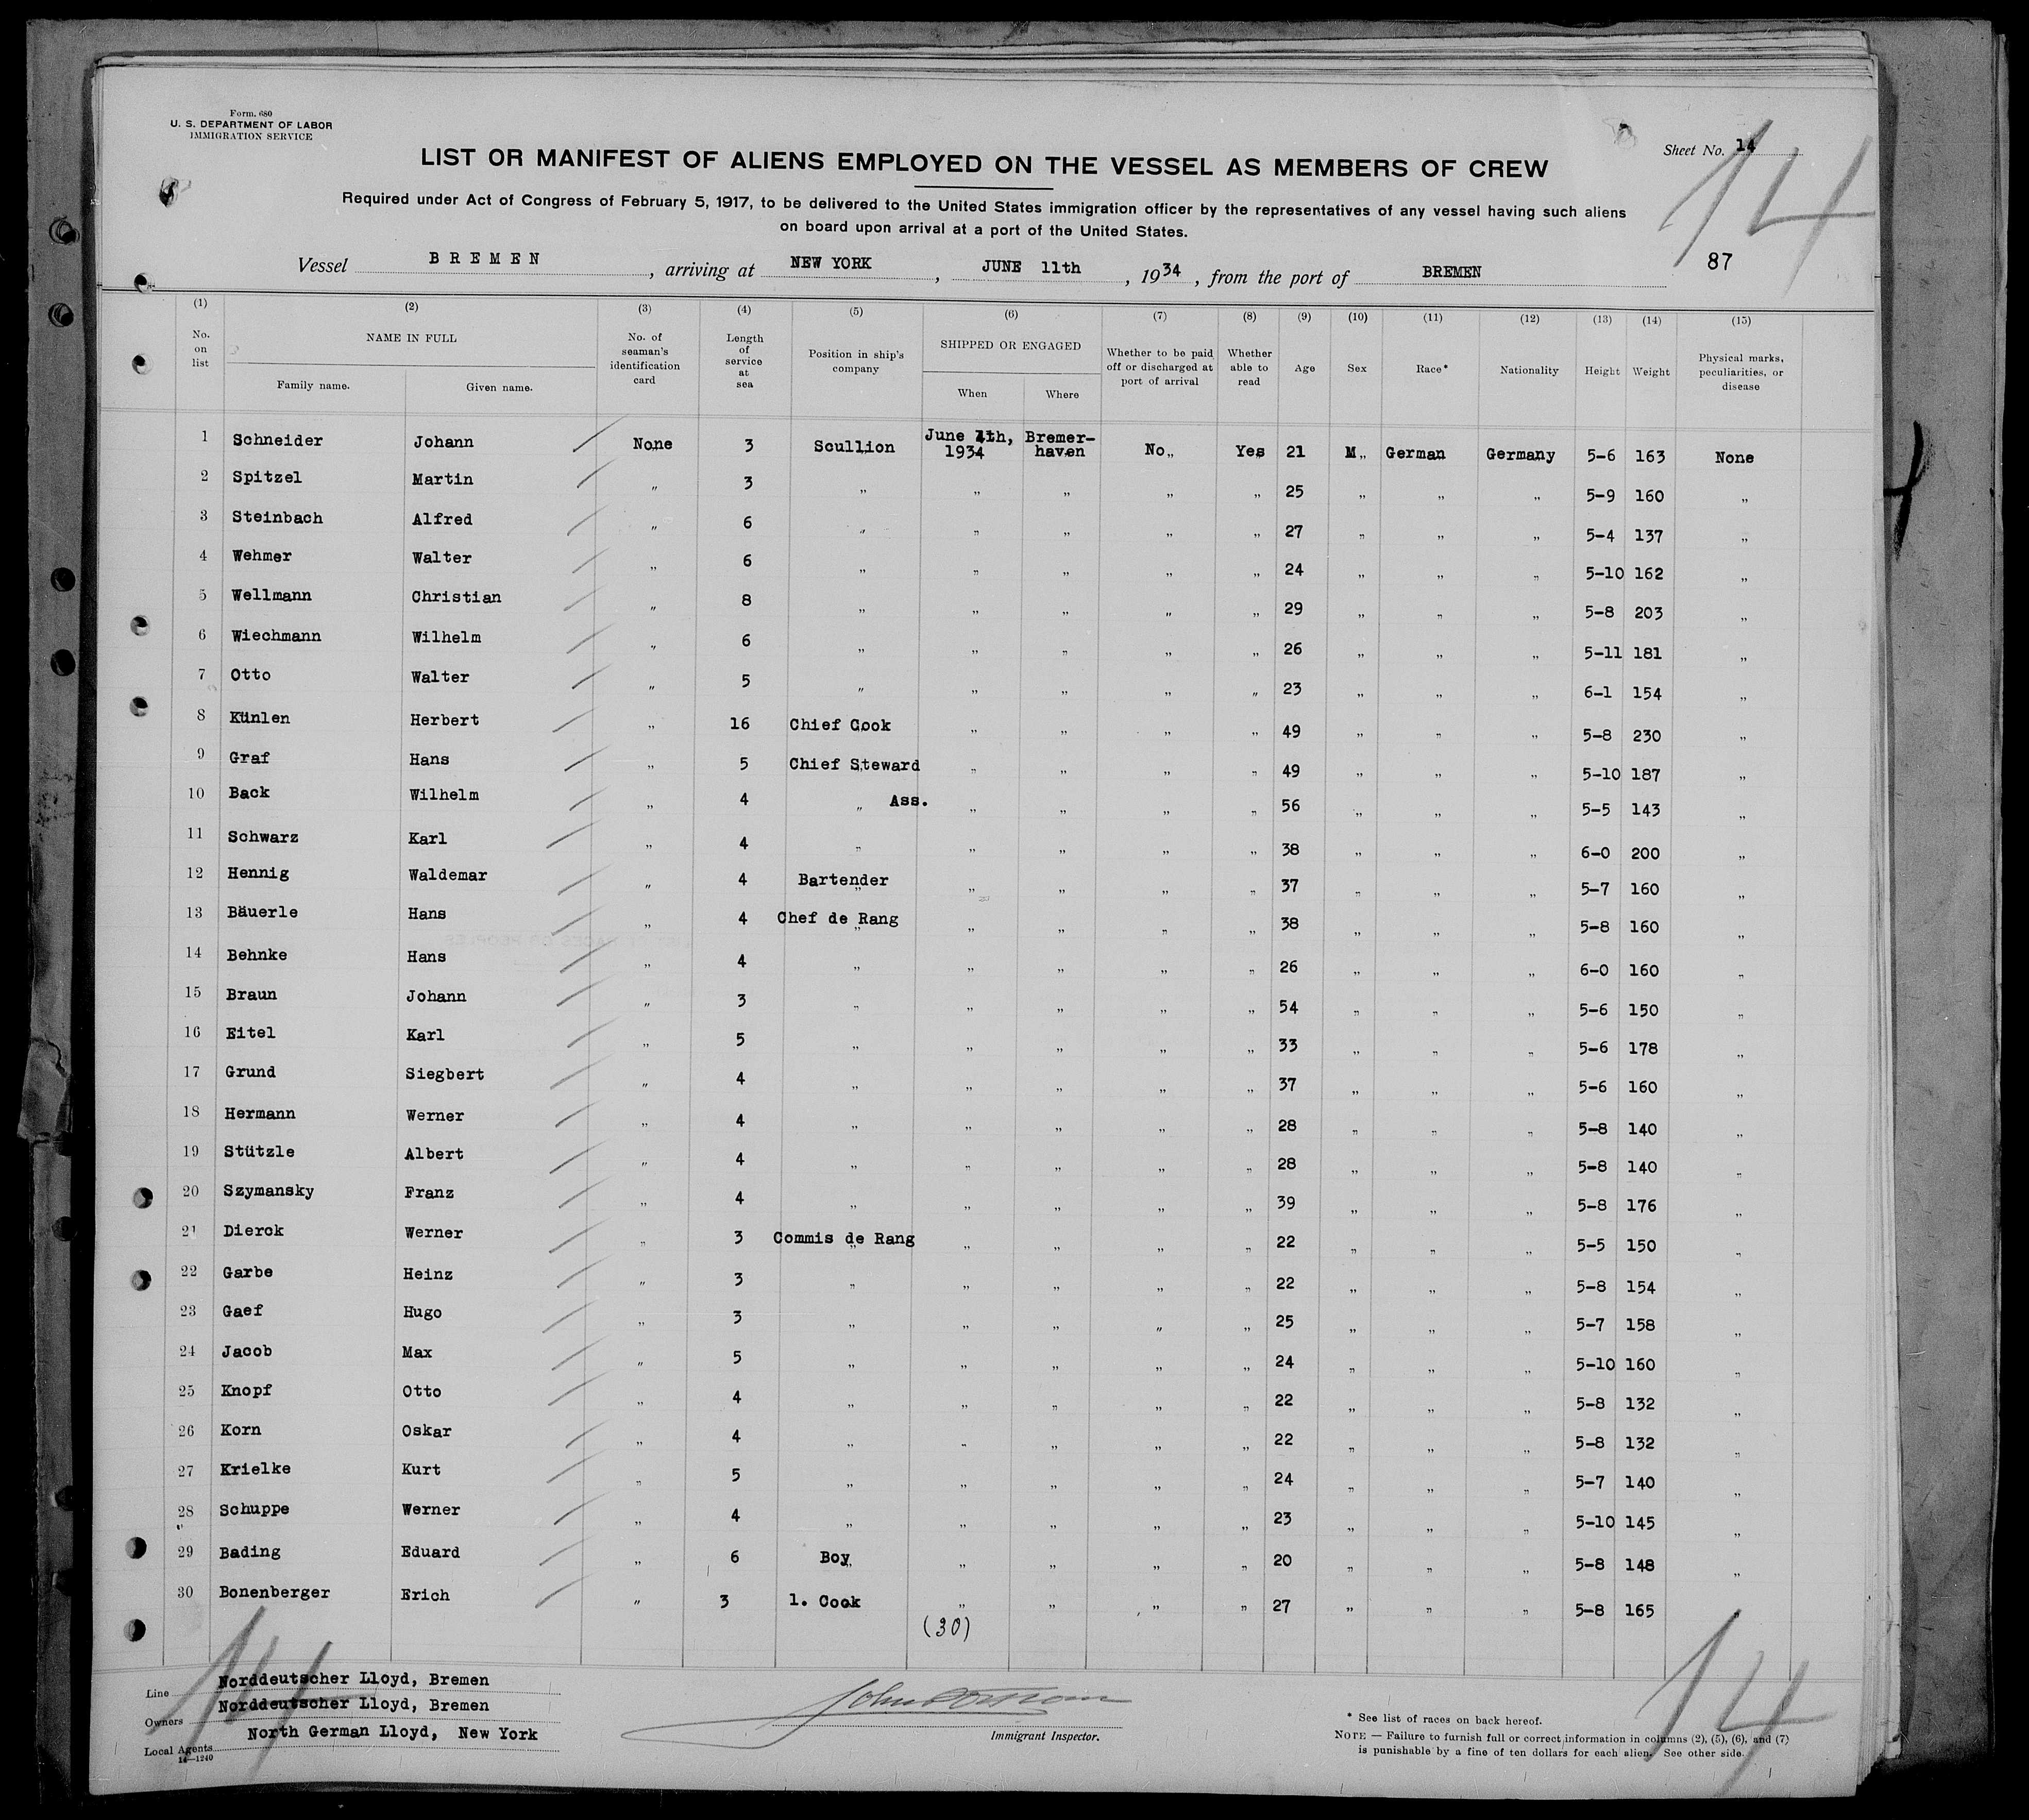 Form. 680
U. S. DEPARTMENT OF LABOR
IMMIGRATION SERVICE
Sheet No. 14
14
LIST OR MANIFEST OF ALIENS EMPLOYED ON THE VESSEL AS MEMBERS OF CREW
Required under Act of Congress of February 5, 1917, to be delivered to the United States immigration officer by the representatives of any vessel having such aliens
on board upon arrival at a port of the United States.
Vessel BREMEN, arriving at NEW YORK, JUNE 11th, 1934, from the port of BREMEN
87
(1) (2) (3) (4) (5) (6) (7) (8) (9) (10) (11) (12) (13) (14) (15)
No. on list NAME IN FULL Family name. Given name. No. of seaman's identification card Length of service at sea Position in ship's company SHIPPED OR ENGAGED When Where Whether to be paid off or discharged at port of arrival Whether able to read Age Sex Race* Nationality Height Weight Physical marks, peculiarities, or disease
1 Schneider Johann None 3 Scullion June 4th, 1934 Bremer-haven No Yes 21 M German Germany 5-6 163 None
2 Spitzel Martin " 3 " " " " " 25 " " " 5-9 160 "
3 Steinbach Alfred " 6 " " " " " 27 " " " 5-4 137 "
4 Wehmer Walter " 6 " " " " " 24 " " " 5-10 162 "
5 Wellmann Christian " 8 " " " " " 29 " " " 5-8 203 "
6 Wiechmann Wilhelm " 6 " " " " " 26 " " " 5-11 181 "
7 Otto Walter " 5 " " " " " 23 " " " 6-1 154 "
8 Künlen Herbert " 16 Chief Cook " " " " 49 " " " 5-8 230 "
9 Graf Hans " 5 Chief Steward " " " " 49 " " " 5-10 187 "
10 Back Wilhelm " 4 " Ass. " " " " 56 " " " 5-5 143 "
11 Schwarz Karl " 4 " " " " " 38 " " " 6-0 200 "
12 Hennig Waldemar " 4 Bartender " " " " 37 " " " 5-7 160 "
13 Bäuerle Hans " 4 Chef de Rang " " " " 38 " " " 5-8 160 "
14 Behnke Hans " 4 " " " " " 26 " " " 6-0 160 "
15 Braun Johann " 3 " " " " " 54 " " " 5-6 150 "
16 Eitel Karl " 5 " " " " " 33 " " " 5-6 178 "
17 Grund Siegbert " 4 " " " " " 37 " " " 5-6 160 "
18 Hermann Werner " 4 " " " " " 28 " " " 5-8 140 "
19 Stützle Albert " 4 " " " " " 28 " " " 5-8 140 "
20 Szymansky Franz " 4 " " " " " 39 " " " 5-8 176 "
21 Dierck Werner " 3 Commis de Rang " " " " 22 " " " 5-5 150 "
22 Garbe Heinz " 3 " " " " " 22 " " " 5-8 154 "
23 Gaef Hugo " 3 " " " " " 25 " " " 5-7 158 "
24 Jacob Max " 5 " " " " " 24 " " " 5-10 160 "
25 Knopf Otto " 4 " " " " " 22 " " " 5-8 132 "
26 Korn Oskar " 4 " " " " " 22 " " " 5-8 132 "
27 Krielke Kurt " 5 " " " " " 24 " " " 5-7 140 "
28 Schuppe Werner " 4 " " " " " 23 " " " 5-10 145 "
29 Bading Eduard " 6 Boy " " " " 20 " " " 5-8 148 "
30 Bonenberger Erich " 3 1. Cook " " " " 27 " " " 5-8 165 "
(30)
14
14
Line Norddeutscher Lloyd, Bremen
Owners Norddeutscher Lloyd, Bremen
Local Agents North German Lloyd, New York
14—1240
Immigrant Inspector.
* See list of races on back hereof.
NOTE — Failure to furnish full or correct information in columns (2), (5), (6), and (7)
is punishable by a fine of ten dollars for each alien. See other side.